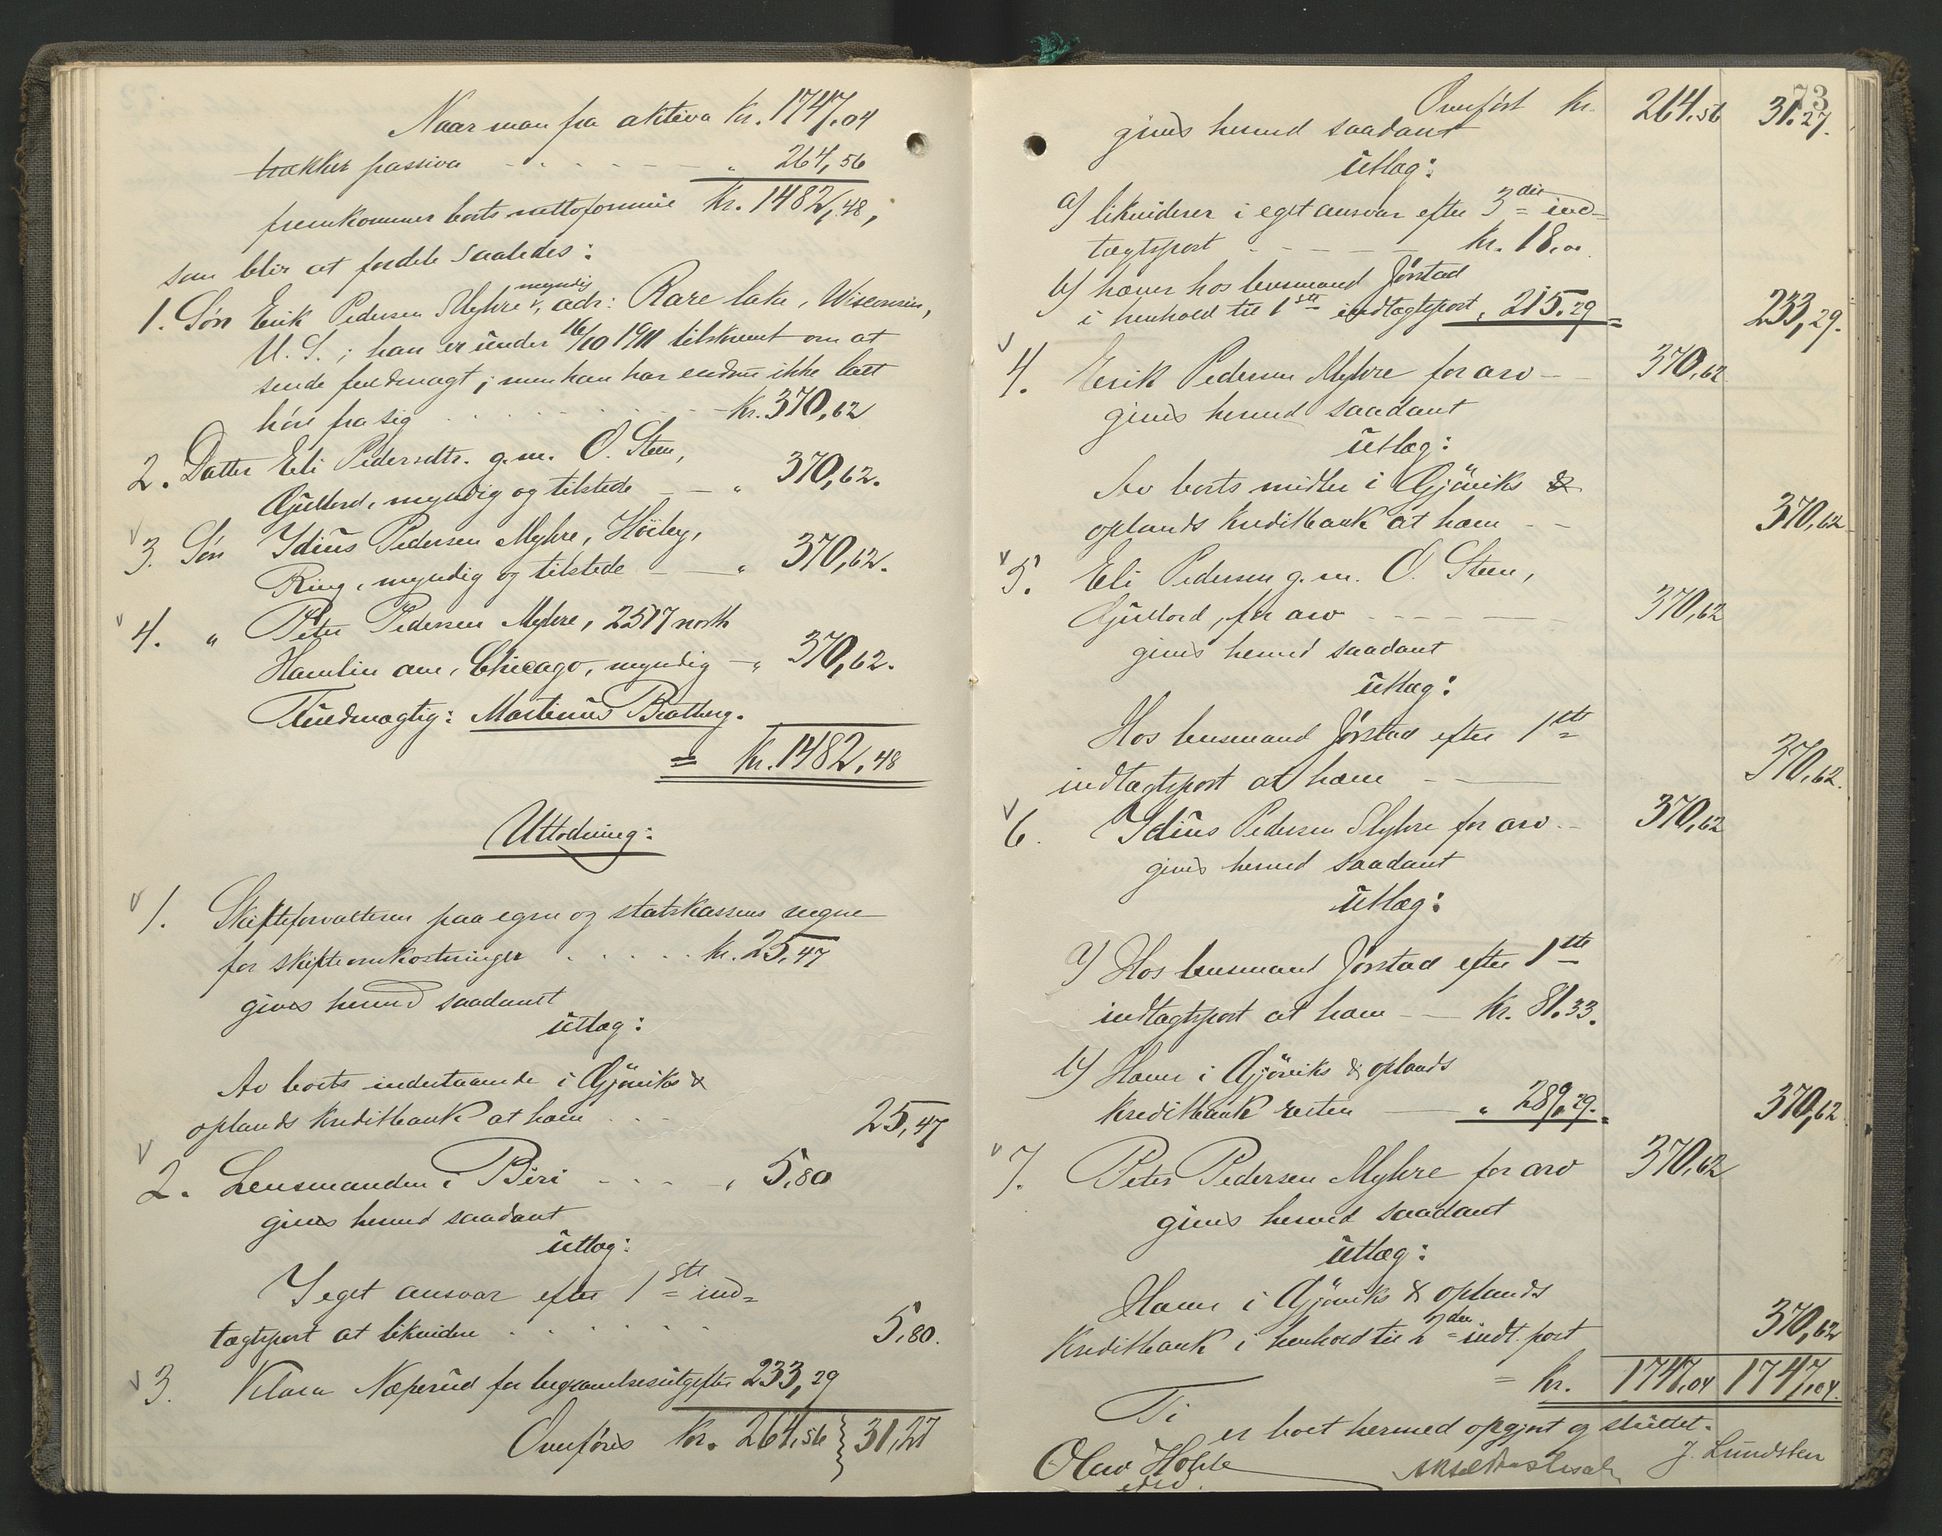 Naar man fra aktiva kr. 1747.04
trækker passiva „ 264,56
fremkommer boets nettoformue kr. 1482,48,
som blir at fordele saaledes:
1. Søn Erik Pedersen Myhre, myndig, adr: Rare lake, Wisconsin,
U. S.; han er under 16/10 1911 tilskrevet om at
sende fuldmagt; men han har endnu ikke latt
høre fra sig kr. 370,62
2. Datter Eli Pedersdtr. g. m. O. Steen,
Gullord, myndig og tilstede „ 370,62.
v 3. Søn Idius Pedersen Myhre, Höiby,
Ring, myndig og tilstede „ 370,62.
v 4. „ Peter Pedersen Myhre, 2517 north
Hamlin ave, Chicago, myndig „ 370,62.
Fuldmægtig: Martinus Bratberg.
= kr. 1482,48
Utlodning:
v 1. Skifteforvalteren paa egne og statskassens vegne
for skifteomkostninger kr. 25,47
gives herved saadant
utlæg:
Av boets indestaaende i Gjøviks &
oplands kreditbank at hæve 25,47
v 2. Lensmanden i Biri „ 5,80
gives herved saadant
utlæg:
I eget ansvar efter 1ste ind=
tægtspost at likvidere 5,80.
v 3. Klara Næperud for begravelsesutgifter 233,29
Overføres kr. 264,56 } 31,27
73
Overført kr. 264.56 31.27.
gives herved saadant
utlæg:
a) likviderer i eget ansvar efter 3die ind=
tægtspost kr. 18,00
b) hæver hos lensmand Jørstad
i henhold til 1ste indtægtspost „ 215.29 = 233,29.
v 4. Erik Pedersen Myhre for arv 370,62
gives herved saadant
utlæg:
Av boets midler i Gjøviks &
oplands kreditbank at hæve 370,62
v 5. Eli Pedersen g. m. O. Steen,
Gullord, for arv 370,62
gives herved saadant
utlæg:
Hos lensmand Jørstad efter 1ste
indtægtspost at hæve 370,62.
v 6. Idius Pedersen Myhre for arv 370,62
gives herved saadant
utlæg:
a) Hos lensmand Jørstad efter 1ste
indtægtspost at hæve kr. 81.33.
b) Hæver i Gjøviks & oplands
kreditbank resten „ 289,29. = 370,62
v 7. Peter Pedersen Myhre for arv 370,62
gives herved saadant
utlæg:
Hæver i Gjøviks & oplands
kreditbank i henhold til 2den indt. post 370,62
= kr. 1747,04 1747,04.
Ti
er boet hermed opgjort og sluttet.
Olav Hoble J. Lundsten